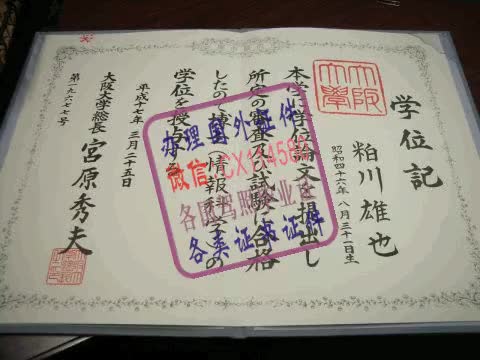 学位記
大阪大学
粕川雄也
昭和四十六年八月三十一日生
本学に学位論文を提出し
所定の審査及び試験に合格
したので博士(情報科学)の
学位を授与する
平成十七年三月二十五日
大阪大学総長 宮原秀夫
第一九六七七号
办理国外证件
微信
各国驾照毕业证
各类证来证样